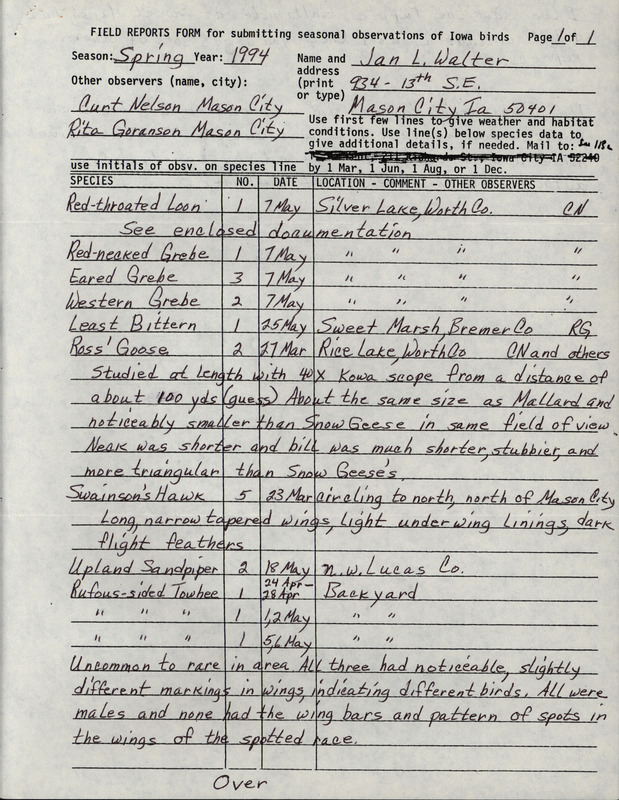 FIELD REPORTS FORM for submitting seasonal observations of Iowa birds Page 1 of 1
Season: Spring Year: 1994 Name and address (print or type) Jan L. Walter
934 - 13th S.E.
Mason City Ia 50401
Other observers (name, city):
Curt Nelson Mason City
Rita Goranson Mason City
Use first few lines to give weather and habitat
conditions. Use line(s) below species data to
give additional details, if needed. Mail to:
Iowa City IA 52240
use initials of obsv. on species line by 1 Mar, 1 Jun, 1 Aug, or 1 Dec.
SPECIES NO. DATE LOCATION - COMMENT - OTHER OBSERVERS
Red-throated Loon 1 7 May Silver Lake, Worth Co. CN
See enclosed documentation
Red-necked Grebe 1 7 May " " " "
Eared Grebe 3 7 May " " " "
Western Grebe 2 7 May " " " "
Least Bittern 1 25 May Sweet Marsh, Bremer Co RG
Ross' Goose 2 27 Mar Rice Lake, Worth Co CN and others
Studied at length with 40X Kowa scope from a distance of
about 100 yds (guess) About the same size as Mallard and
noticeably smaller than Snow Geese in same field of view.
Neck was shorter and bill was much shorter, stubbier, and
more triangular than Snow Geese's.
Swainson's Hawk 5 23 Mar circling to north, north of Mason City
Long, narrow tapered wings, light under wing linings, dark
flight feathers
Upland Sandpiper 2 18 May n.w. Lucas Co.
Rufous-sided Towhee 1 24 Apr - 28 Apr Backyard
" " " 1 1,2 May " "
" " " 1 5,6 May " "
Uncommon to rare in area. All three had noticeable, slightly
different markings in wings, indicating different birds. All were
males and none had the wing bars and pattern of spots in
the wings of the spotted race.
Over